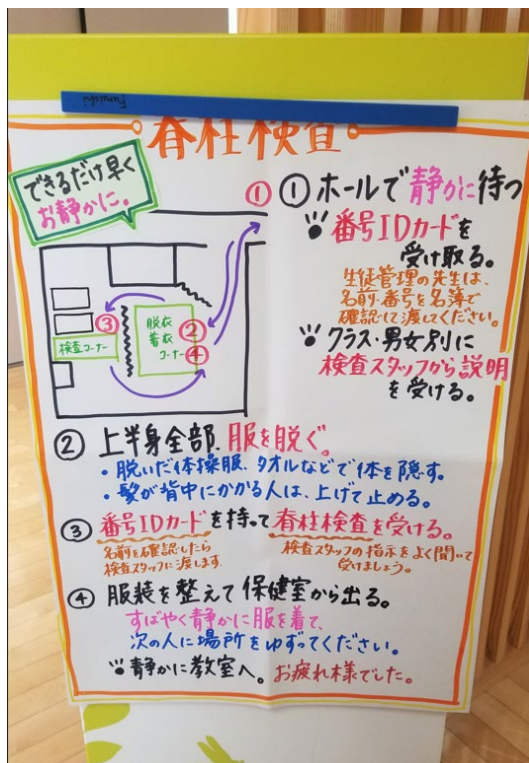 脊柱検査
できるだけ早く
お静かに。
①
①ホールで静かに待つ
番号IDカードを
受け取る。
生徒管理の先生は、
名前・番号を名簿で
確認して渡してください。
クラス・男女別に
検査スタッフから説明
を受ける。
③
検査コーナー
脱衣
着衣
コーナー
②
④
②上半身全部、服を脱ぐ。
・脱いだ体操服、タオルなどで体を隠す。
・髪が背中にかかる人は、上げて止める。
③番号IDカードを持って脊柱検査を受ける。
名前を確認したら
検査スタッフに渡します
検査スタッフの指示をよく聞いて
受けましょう。
④服装を整えて保健室から出る。
すばやく静かに服を着て、
次の人に場所をゆずってください。
静かに教室へ。お疲れ様でした。